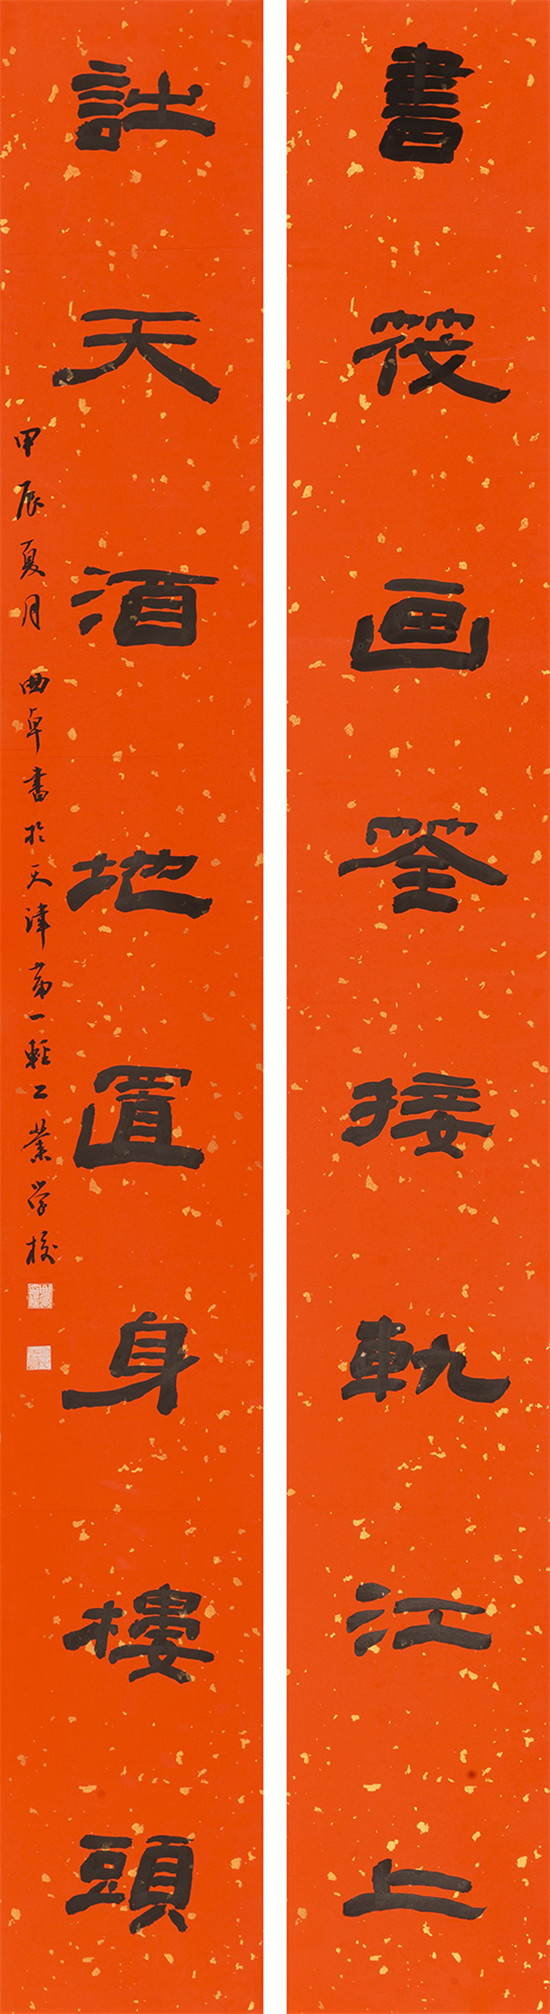 書筏画筌接軌江上
詩天酒地置身樓頭
甲辰夏月 曲卓書於天津第一輕工業学校